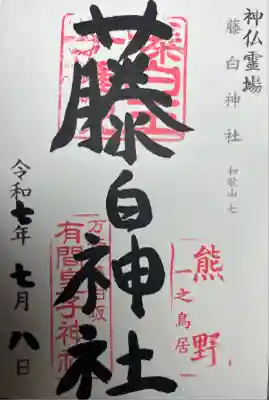 神仏霊場
藤白神社
和歌山 七
藤白神社
熊野
一之鳥居
有間皇子神社
令和七年 七月八日